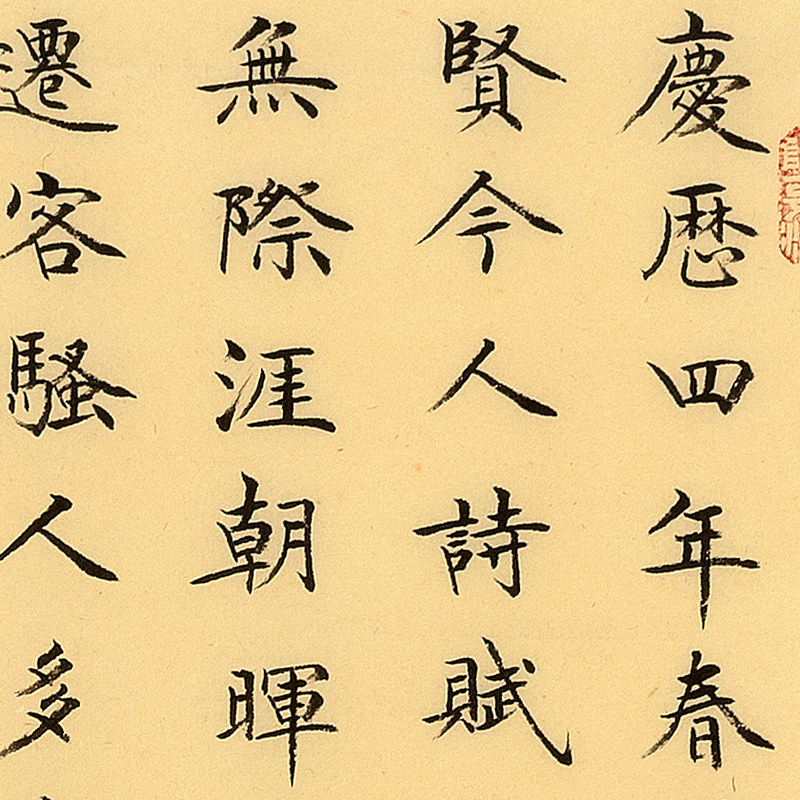 慶曆四年春
賢今人詩賦
無際涯朝暉
遷客騷人多